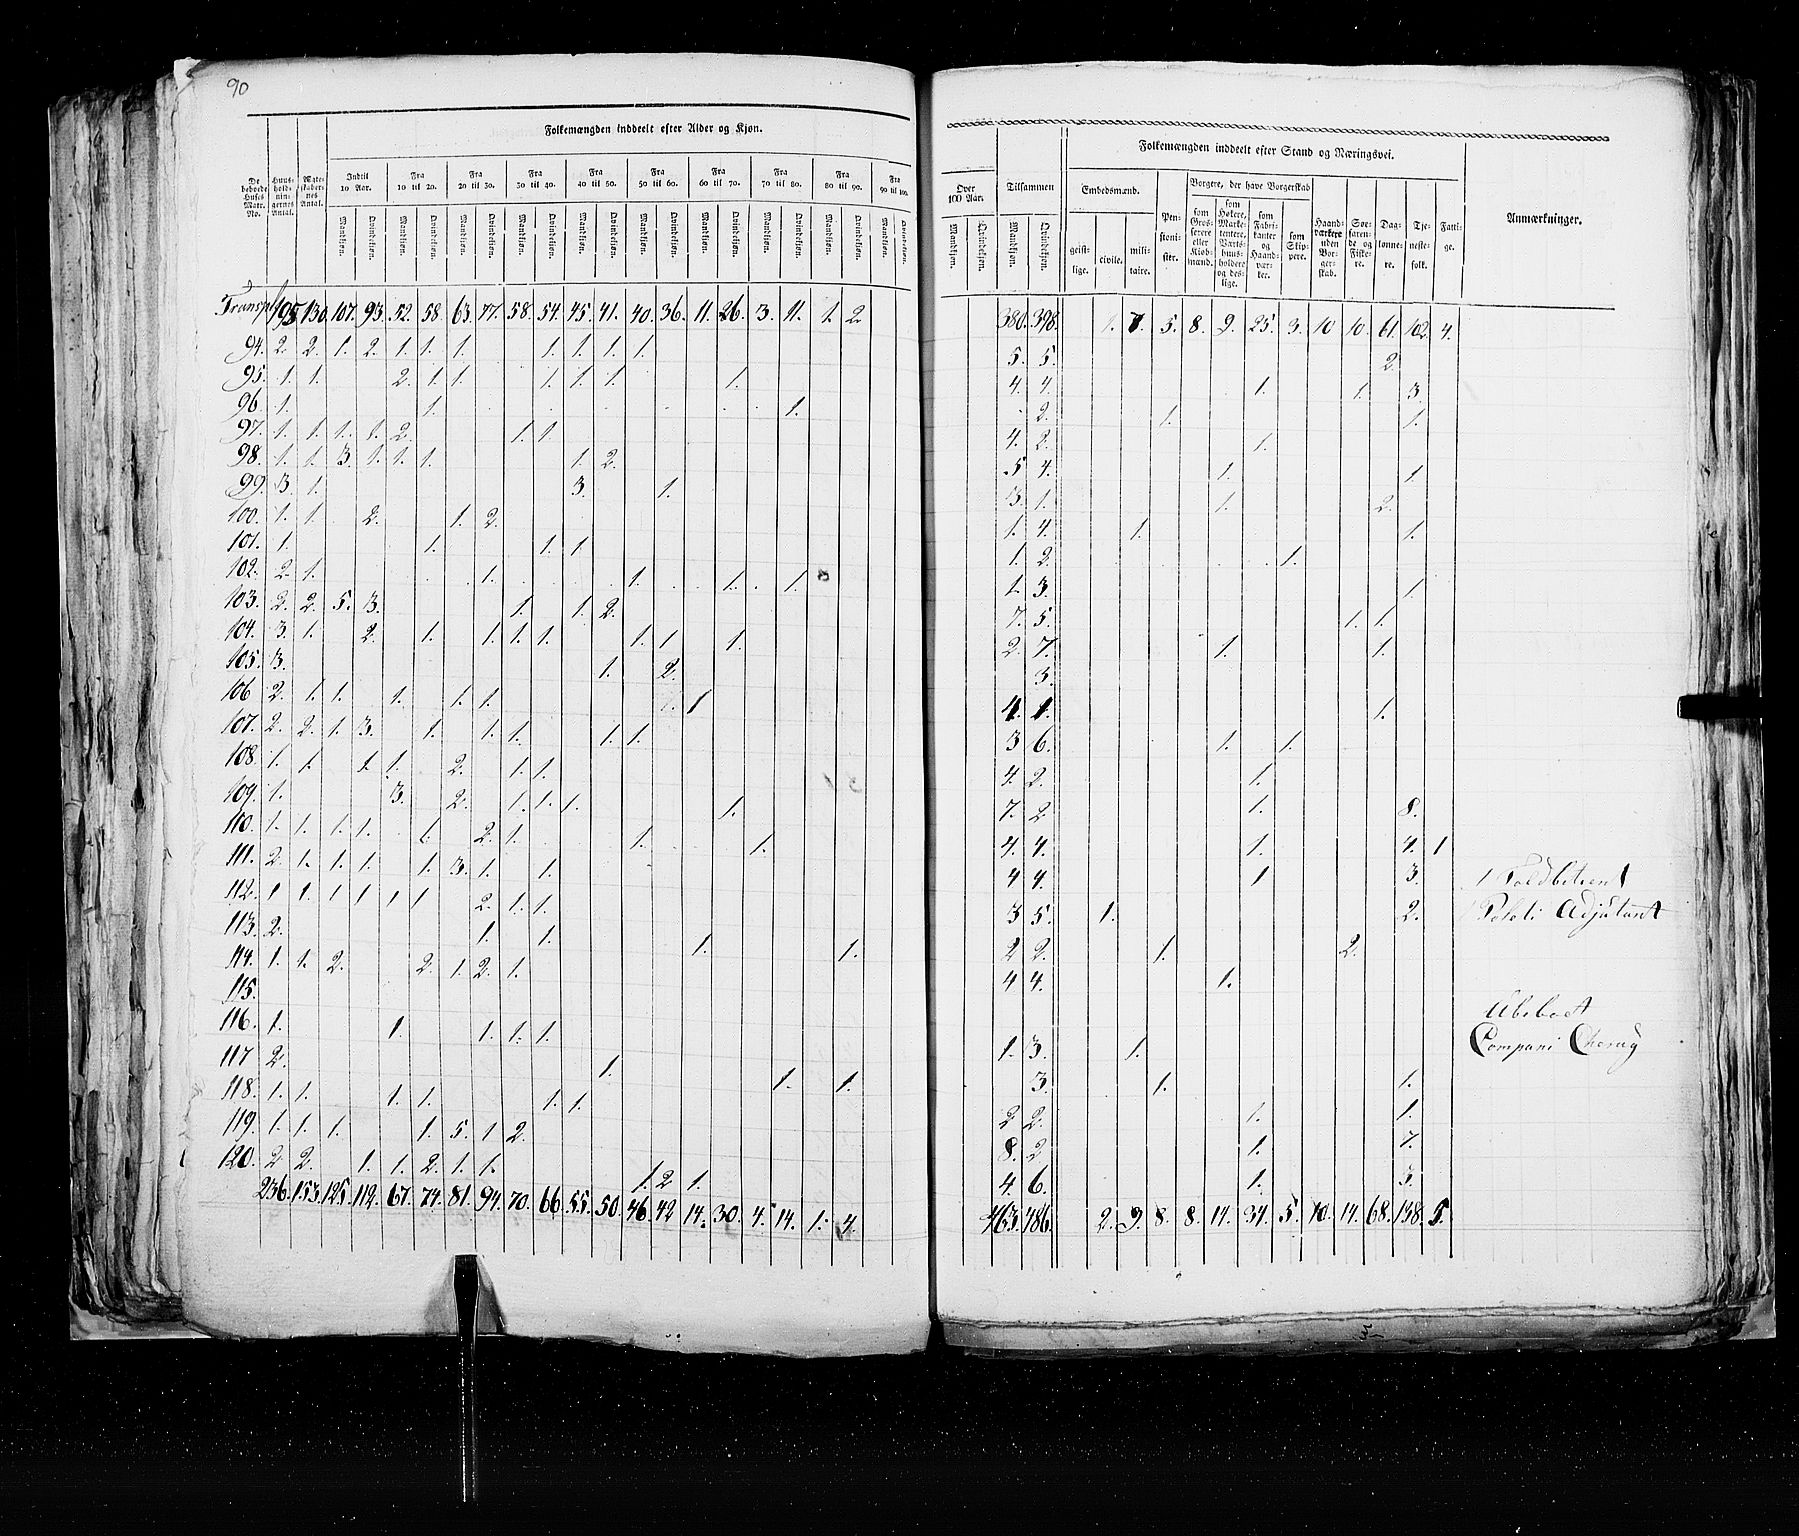 90
Folkemængden inddeelt efter Alder og Kjøn.
De beboede Huses Matr. No.
Huusholdningernes Antal.
Ægteskabernes Antal.
Indtil 10 Aar.
Fra 10 til 20.
Fra 20 til 30.
Fra 30 til 40.
Fra 40 til 50.
Fra 50 til 60.
Fra 60 til 70.
Fra 70 til 80.
Fra 80 til 90.
Fra 90 til 100.
Mandkjøn. Qvindekjøn. Mandkjøn. Qvindekjøn. Mandkjøn. Qvindekjøn. Mandkjøn. Qvindekjøn. Mandkjøn. Qvindekjøn. Mandkjøn. Qvindekjøn. Mandkjøn. Qvindekjøn. Mandkjøn. Qvindekjøn. Mandkjøn. Qvindekjøn. Mandkjøn. Qvindekjøn.
Transpt 195 130. 107. 93. 52. 58. 63. 77. 58. 54. 45. 41. 40. 36. 11. 26. 3. 11. 1. 2.
94. 2. 2. 1. 2. 1. 1. 1. 1. 1. 1. 1.
95. 1. 1. 2. 1. 1. 1. 1. 1. 1.
96. 1. 1. 1.
97. 1. 1. 1. 1. 2. 1. 1.
98. 1. 1. 3. 1. 1. 1. 1. 2.
99. 3. 1. 3. 1.
100. 1. 1. 2. 1. 2.
101. 1. 1. 1. 1
102. 2. 1. 1. 1. 1. 1.
103. 2. 2. 5. 3. 1. 1. 2.
104. 3. 1. 2. 1. 1. 1. 1. 1. 1. 1.
105. 3. 1. 2.
106 2. 1. 1. 1. 1. 1. 1
107. 2. 2. 1. 3. 1. 1. 1. 1. 1.
108. 1. 1. 1. 1. 2. 1. 1.
109. 1. 3. 2. 1. 1. 1. 1.
110. 1. 1. 1. 1. 1. 2. 1. 1. 1.
111. 2. 1. 1. 1. 1. 3. 1. 1.
112. 1 1. 1 1 1 1 2. 1. 1.
113. 2. 1. 1. 1. 1.
114. 1. 1. 2. 2. 1. 2. 1.
115.
116. 1. 1. 1. 1. 1.
117 2. 1. 1. 1.
118. 1. 1. 1. 1. 1. 1.
119. 1. 1. 1. 1. 5. 1 2.
120. 2. 2. 1. 1. 2. 1. 1. 1. 2 1.
236. 153. 125. 112. 67. 74. 81. 94. 70. 66 55. 50. 46. 42 14. 30. 4. 14. 1. 4.
Over 100 Aar.
Tilsammen
Mandkjøn. Qvindekjøn. Mandkjøn. Qvindekjøn.
Folkemængden inddeelt efter Stand og Næringsvei.
Embedsmænd.
geistlige. civile. militaire.
Pensionister.
Borgere, der have Borgerskab
som Grosserere eller Kjøbmænd.
som Høkere, Marketentere, Vertshuusholdere og deslige.
som Fabrikanter og Haandværker.
som Skippere.
Haandværkere uden Borgerskab.
Søefarende og Fiskere.
Daglønnere.
Tjenestefolk.
Fattige.
Anmærkninger.
380. 398. 1. 7. 5. 8. 9. 25. 3. 10 10. 61. 102. 4.
5. 5. 2.
4. 4. 1. 1. 3.
2. 1. 1.
4. 2. 1.
5 4. 1. 1.
3. 1. 1. 2.
1. 4. 1. 1.
1. 2. 1.
1. 3. 1.
7. 5. 1. 1.
2. 7. 1. 1.
3.
4. 1. 1.
3 6. 1. 1.
4. 2. 1.
7. 2 1. 8.
4. 4. 1. 4. 1
4 4. 1 3. 1 Toldbetient
3 5. 1. 2. Adjutant
2 2. 1. 2.
4 4. 1.
Ubeboet
1. 3. 1. Compani
3. 1. 1.
2 2. 1. 1.
8. 2 1. 7.
4. 6. 1. 5.
463. 486. 2. 9. 8. 8. 14. 34. 5. 10. 14. 68. 138. 5.